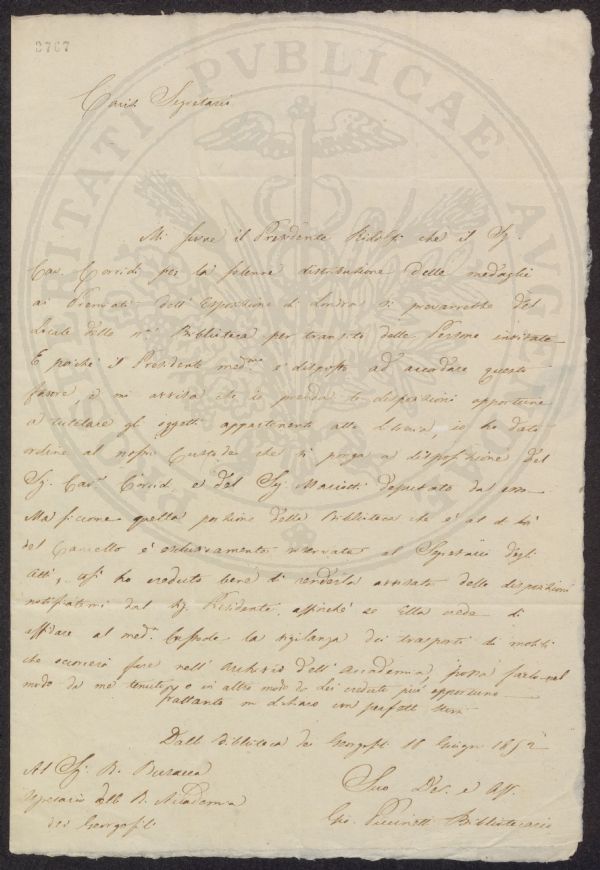 2767
PROSPERITATI PVBLICAE AVGENDAE
Cariss. Segretario
Mi scrive il Presidente Ridolfi che il Sig.
Cav. Corridi per la solenne distribuzione delle medaglie
ai Premiati dell'Esposizione di Londra si prevarrebbe del
Locale della Biblioteca per transito delle Persone invitate
E poiché il Presidente med.mo è disposto ad accordare questo
favore, e mi avvisa che io prenda le disposizioni opportune
a tutelare gli oggetti appartenenti alla Libreria, io ho dato
ordine al nostro Custode che si ponga a disposizione del
Sig. Cav. Corridi e del Sig. deputato da esso
Ma siccome quella porzione della Biblioteca che è al di là
del Cancello è esclusivamente riservata al Segretario degli
Atti, così ho creduto bene di renderla avvisato delle disposizioni
notificatemi dal Sig. Presidente, affinché se Ella crede di
affidare al med.o Custode la vigilanza dei trasporti di mobili
che occorrerà fare nell'Archivio dell'Accademia, possa farlo nel
modo da me tenuto, o in altro modo da Lei creduto più opportuno
Frattanto mi dichiaro con perfetta stima
Dalla Biblioteca dei Georgofili 18 Giugno 1852
Al Sig. B.
Segretario della R. Accademia
dei Georgofili
Suo Dev. e Aff.
Bibliotecario